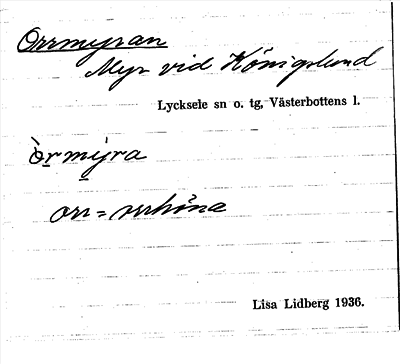 Orrmyran
Myr vid Königslund
Lycksele sn o. tg, Västerbottens l.
òrmýra
orr = orrhöna
Lisa Lidberg 1936.